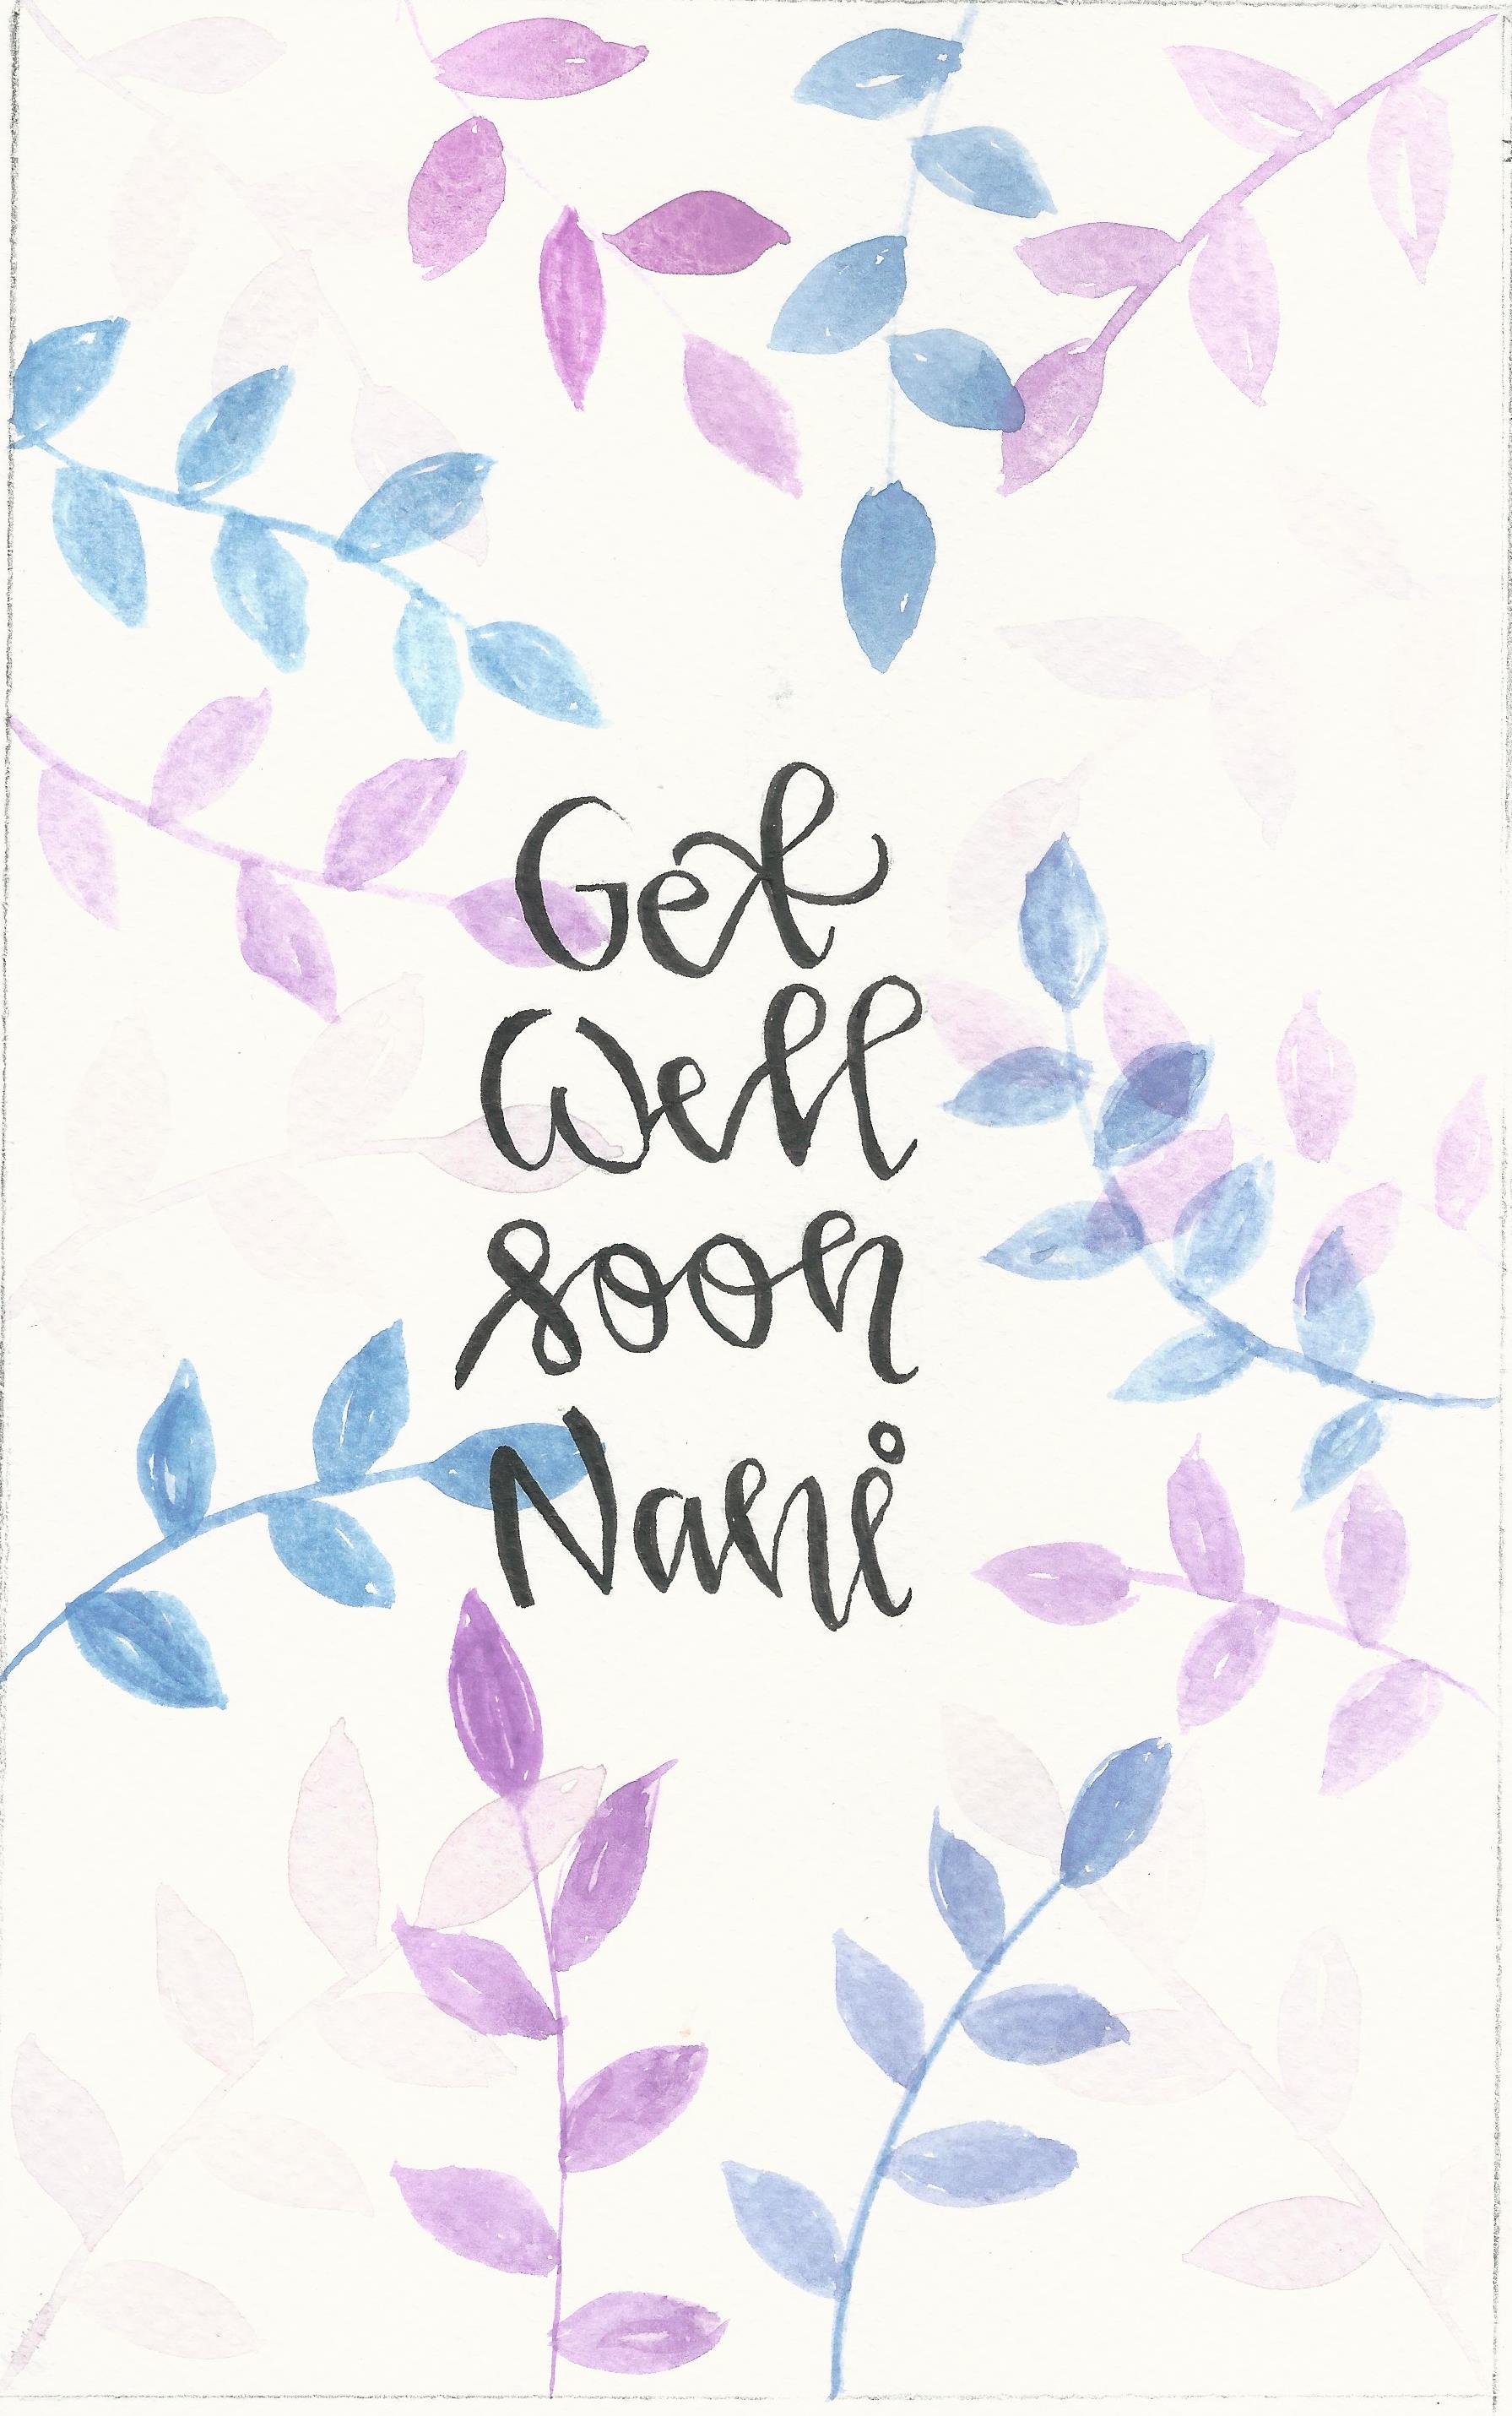 Get
Well
soon
Nani